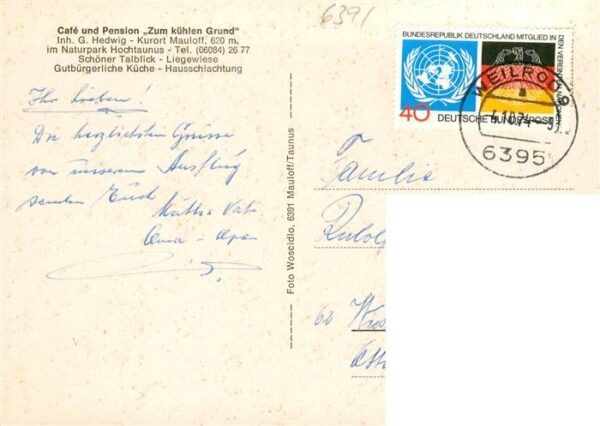 Café und Pension „Zum kühlen Grund“
Inh. G. Hedwig - Kurort Mauloff, 620 m,
im Naturpark Hochtaunus - Tel. (06084) 26 77
Schöner Talblick - Liegewiese
Gutbürgerliche Küche - Hausschlachtung
6391
BUNDESREPUBLIK DEUTSCHLAND MITGLIED IN
DEN VEREINTEN NATIONEN
40
DEUTSCHE BUNDESPOST
WEILROD
a
6395
Ihr Lieben!
Die herzlichsten Grüsse
von unserem Ausflug
senden Euch
Vati
Oma - Opa
Foto Woscidlo, 6391 Mauloff/Taunus
Familie
62